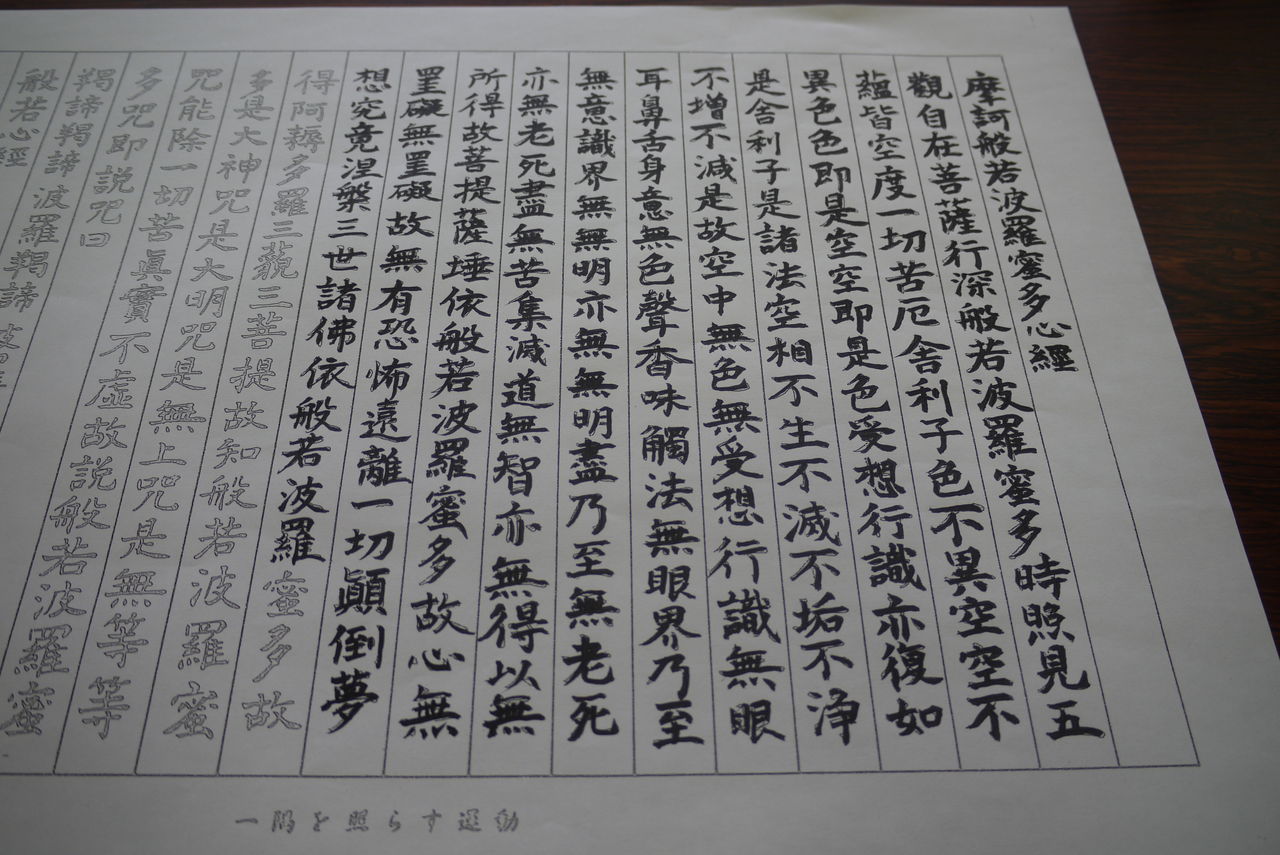 摩訶般若波羅蜜多心經
觀自在菩薩行深般若波羅蜜多時照見五
蘊皆空度一切苦厄舍利子色不異空空不
異色色即是空空即是色受想行識亦復如
是舍利子是諸法空相不生不滅不垢不淨
不增不減是故空中無色無受想行識無眼
耳鼻舌身意無色聲香味觸法無眼界乃至
無意識界無無明亦無無明盡乃至無老死
亦無老死盡無苦集滅道無智亦無得以無
所得故菩提薩埵依般若波羅蜜多故心無
罣礙無罣礙故無有恐怖遠離一切顛倒夢
想究竟涅槃三世諸佛依般若波羅蜜多故
得阿耨多羅三藐三菩提故知般若波羅蜜
多是大神咒是大明咒是無上咒是無等等
咒能除一切苦眞實不虛故説般若波羅蜜
多咒即説咒曰
羯諦羯諦波羅羯諦
般若心經
一隅を照らす運動